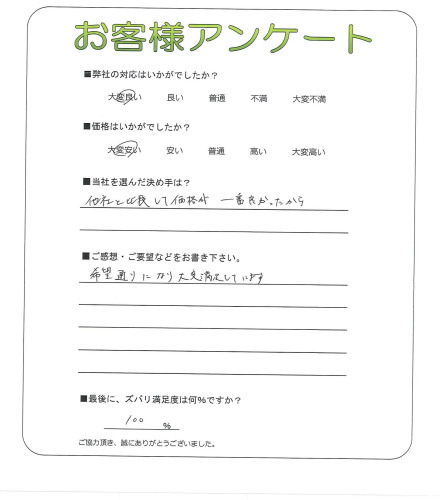 お客様アンケート
■弊社の対応はいかがでしたか?
大変良い 良い 普通 不満 大変不満
■価格はいかがでしたか?
大変安い 安い 普通 高い 大変高い
■当社を選んだ決め手は?
他社と比較して価格が 一番良かったから
■ご感想・ご要望などをお書き下さい。
希望通りになり大変満足しています
■最後に、ズバリ満足度は何%ですか?
100 %
ご協力頂き、誠にありがとうございました。